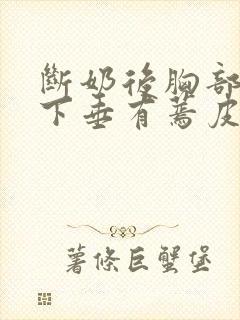 斷奶後胸部
下垂有蔫皮
薯條巨蟹堡